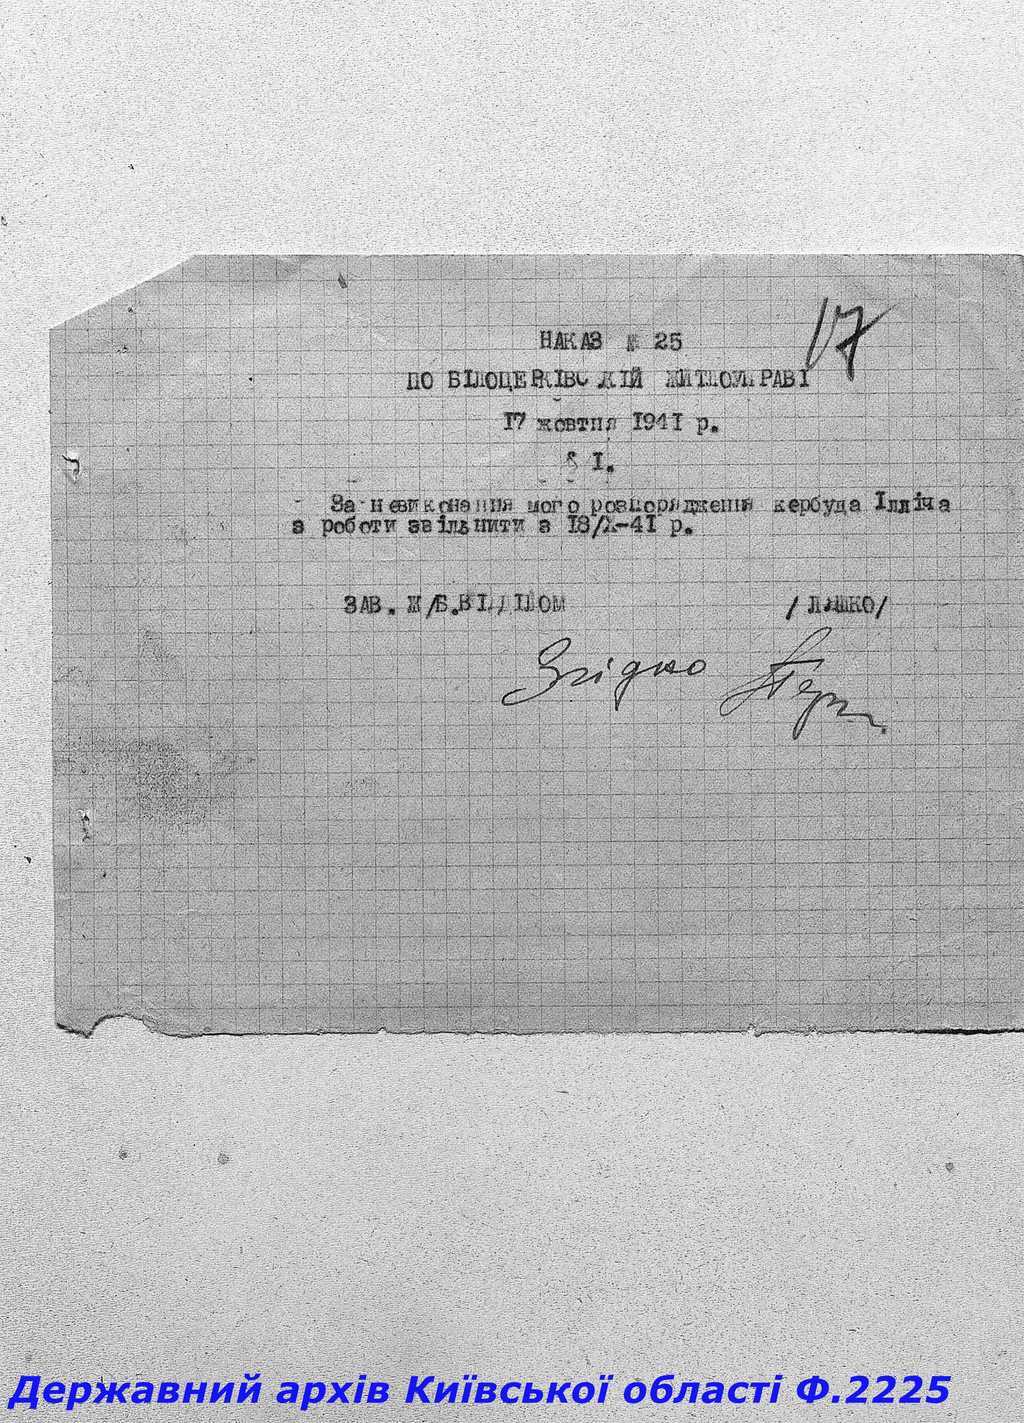 17
НАКАЗ № 25
ПО БІЛОЦЕРКІВСЬКІЙ ЖИТЛОУПРАВІ
17 жовтня 1941 р.
§ І.
За невиконання мого розпорядження кербуда Ілліча
з роботи звільнити з 18/Х-41 р.
ЗАВ. Ж/Б.ВІДДІЛОМ /ЛЯШКО/
Згідно
Державний архів Київської області Ф.2225